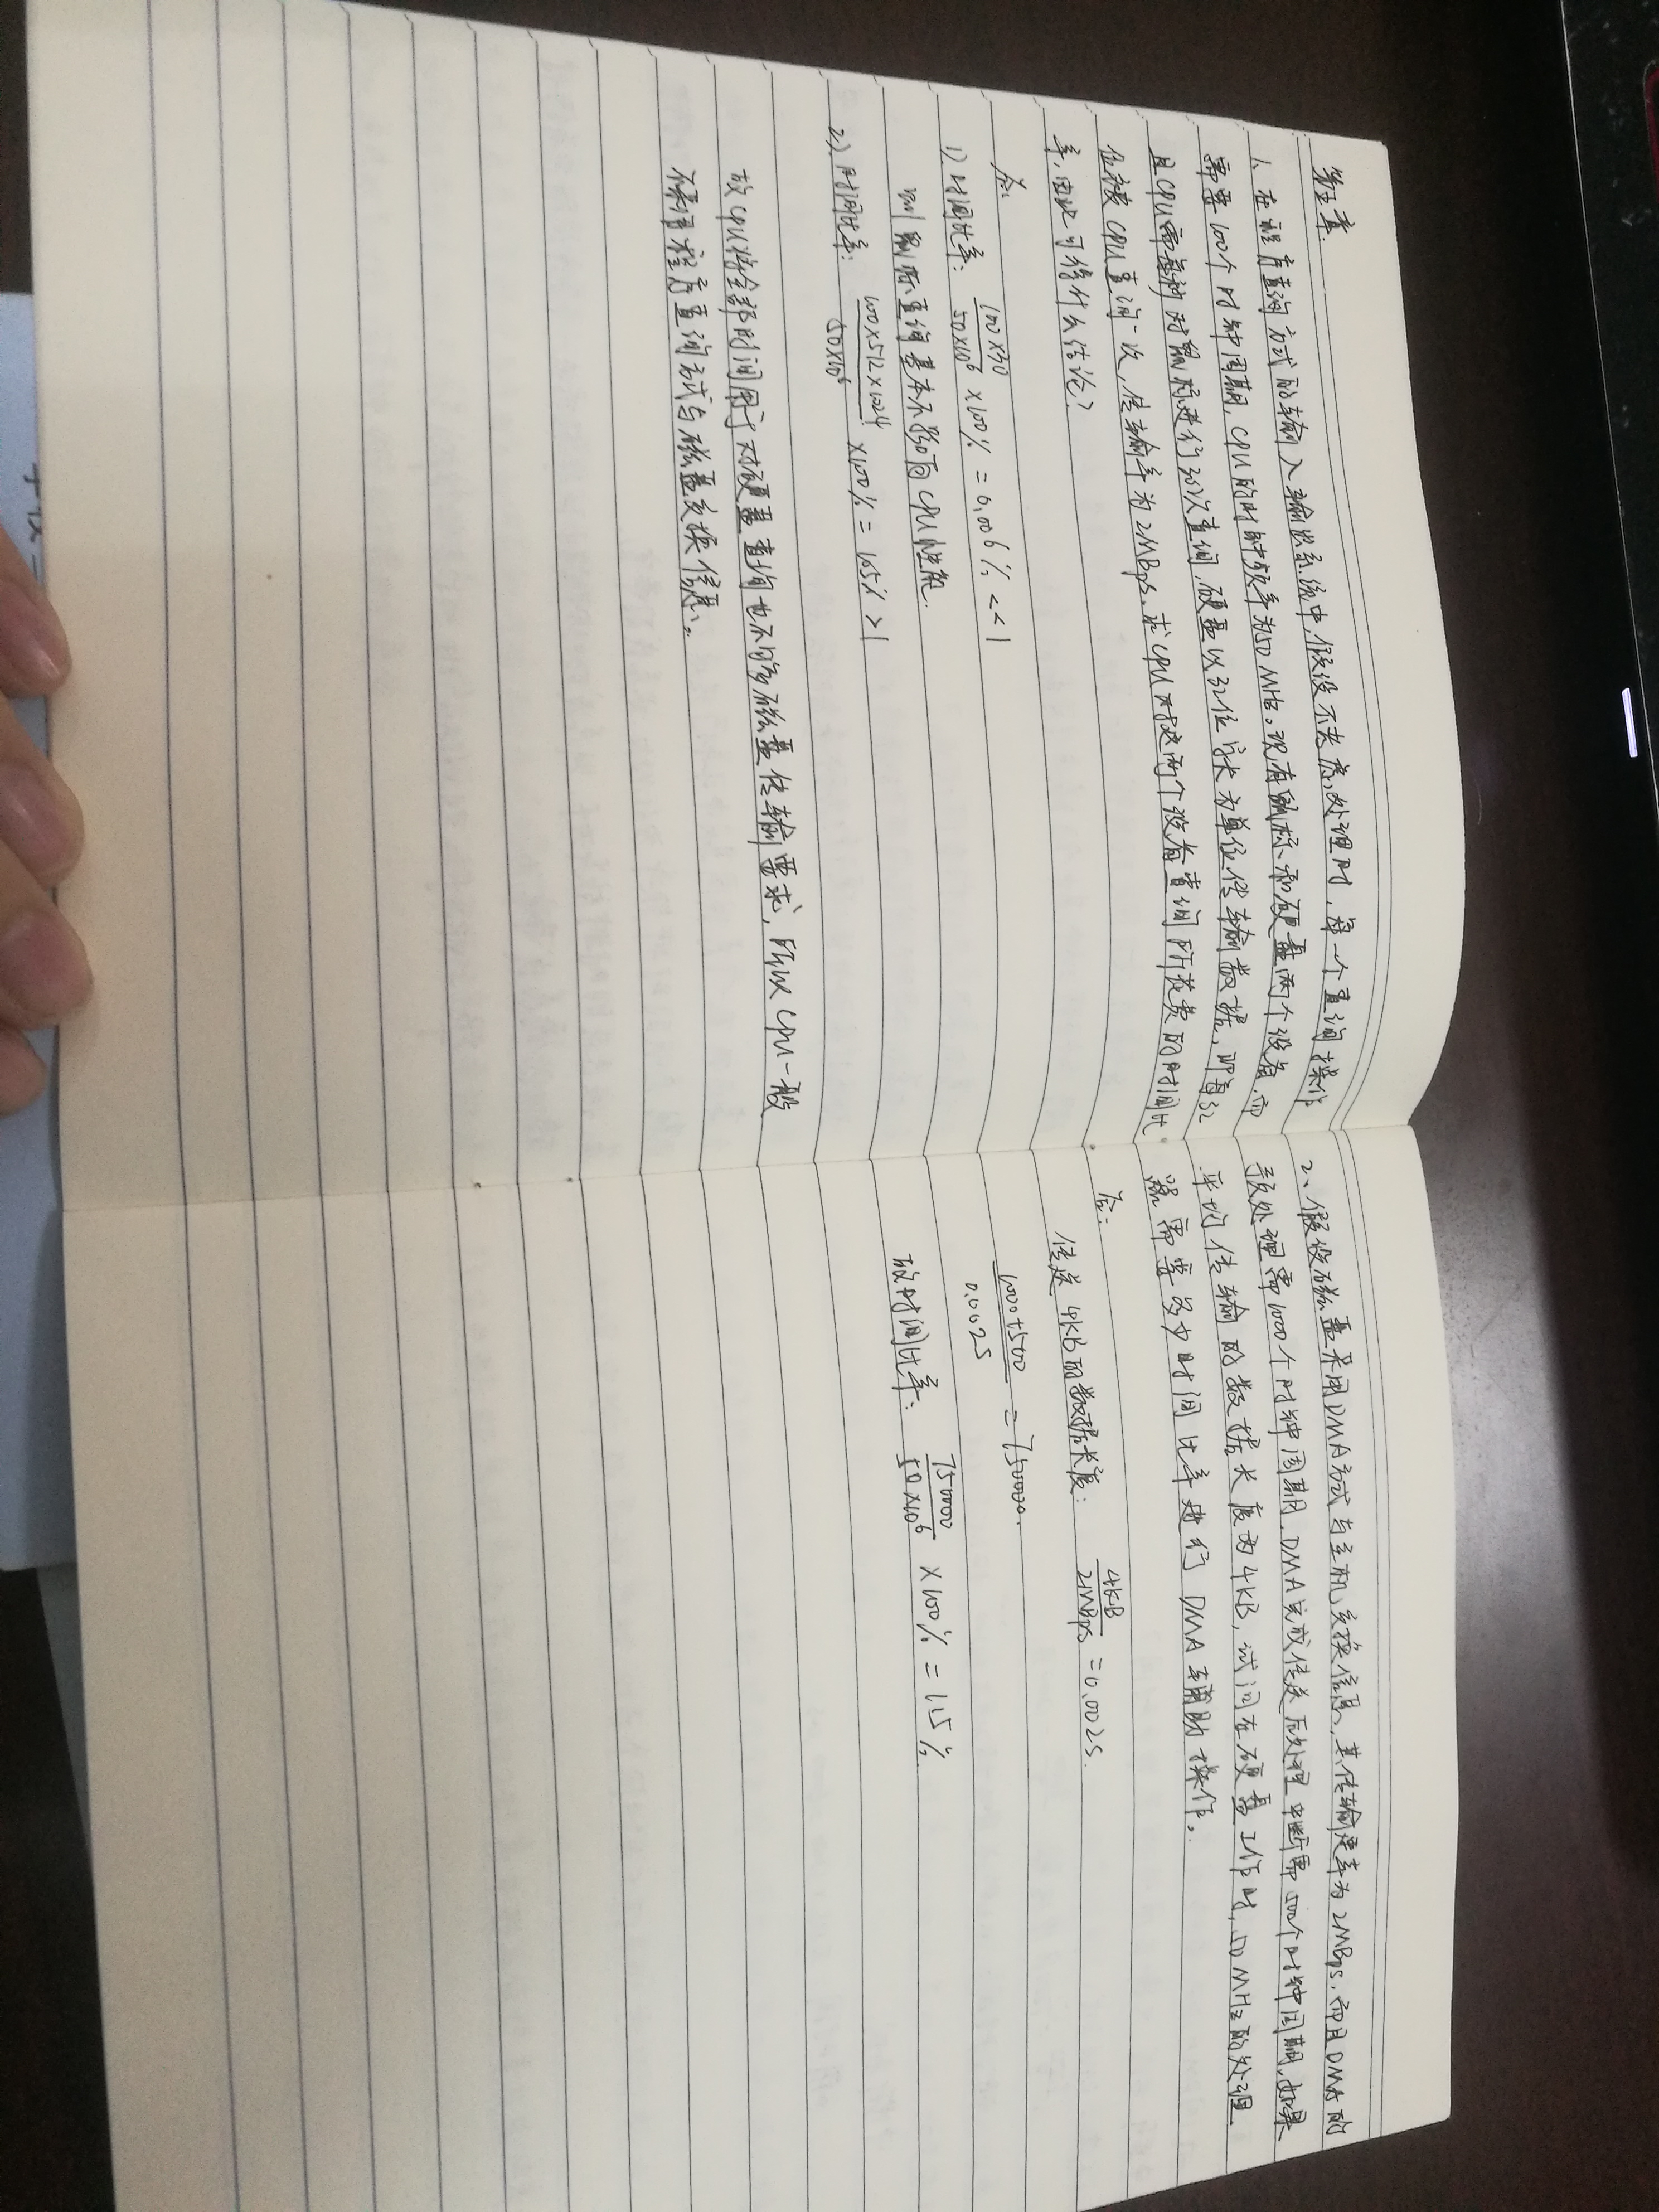 第五章.
1、在程序查询方式的输入输出系统中,假设不考虑处理时,每一个查询操作
需要100个时钟周期,CPU的时钟频率为50MHz。现有鼠标和硬盘两个设备,而
且CPU需每秒对鼠标进行30次查询,硬盘以32位字长为单位传输数据,即每32
位被CPU查询一次,传输率为2MBps.求CPU对这两个设备查询所花费的时间比
率,由此可得什么结论?
答:
1) 时间比率: 100×30 / 50×10⁶ ×100% = 0.006% <<1
则鼠标查询基本不影响CPU性能.
2) 时间比率: 100×512×1024 / 50×10⁶ ×100% = 105% >1
故CPU将全部时间用于对硬盘查询也不能够磁盘传输要求,所以CPU一般
不采用程序查询方式与磁盘交换信息。
2、假设磁盘采用DMA方式与主机交换信息,其传输速率为2MBps.而且DMA的
预处理需1000个时钟周期,DMA完成传送后处理中断需500个时钟周期,如果
平均传输的数据长度为4KB,试问在硬盘工作时,50MHz的处理
器需要多少时间比率进行DMA辅助操作。
答:
传送4KB的数据长度: 4KB / 2MBps = 0.002s
1000+500 / 0.002s = 750000.
故时间比率: 750000 / 50×10⁶ ×100% = 1.5%